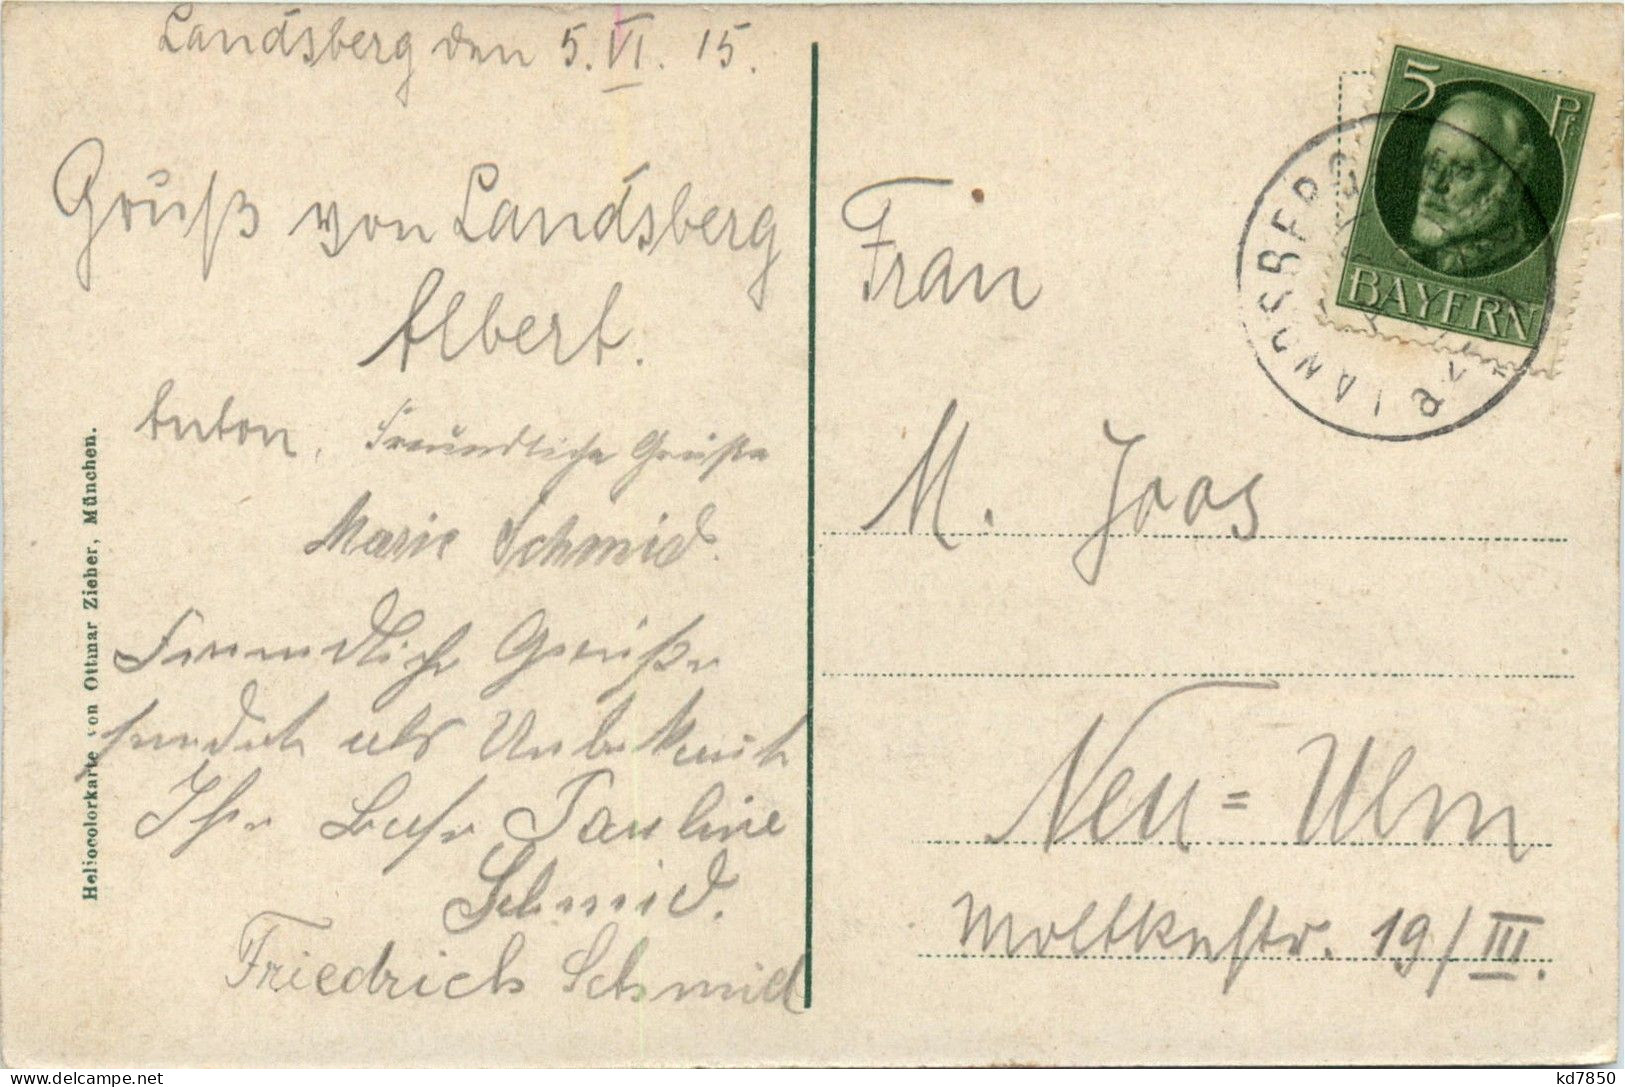 Landsberg den 5. VI. 15.
Gruß von Landsberg
Albert.
Anton, Freundliche Grüße
Marie Schmid.
Freundliche Grüße
sendet als Unbekannt
Ihr Pauline
Schmid.
Friedrich Schmid
Heliocolorkarte von Ottmar Zieher, München.
5 Pf
BAYERN
LANDSBERG
Frau
M. Joos
Neu=Ulm
Moltkestr. 19/III.
kd7850